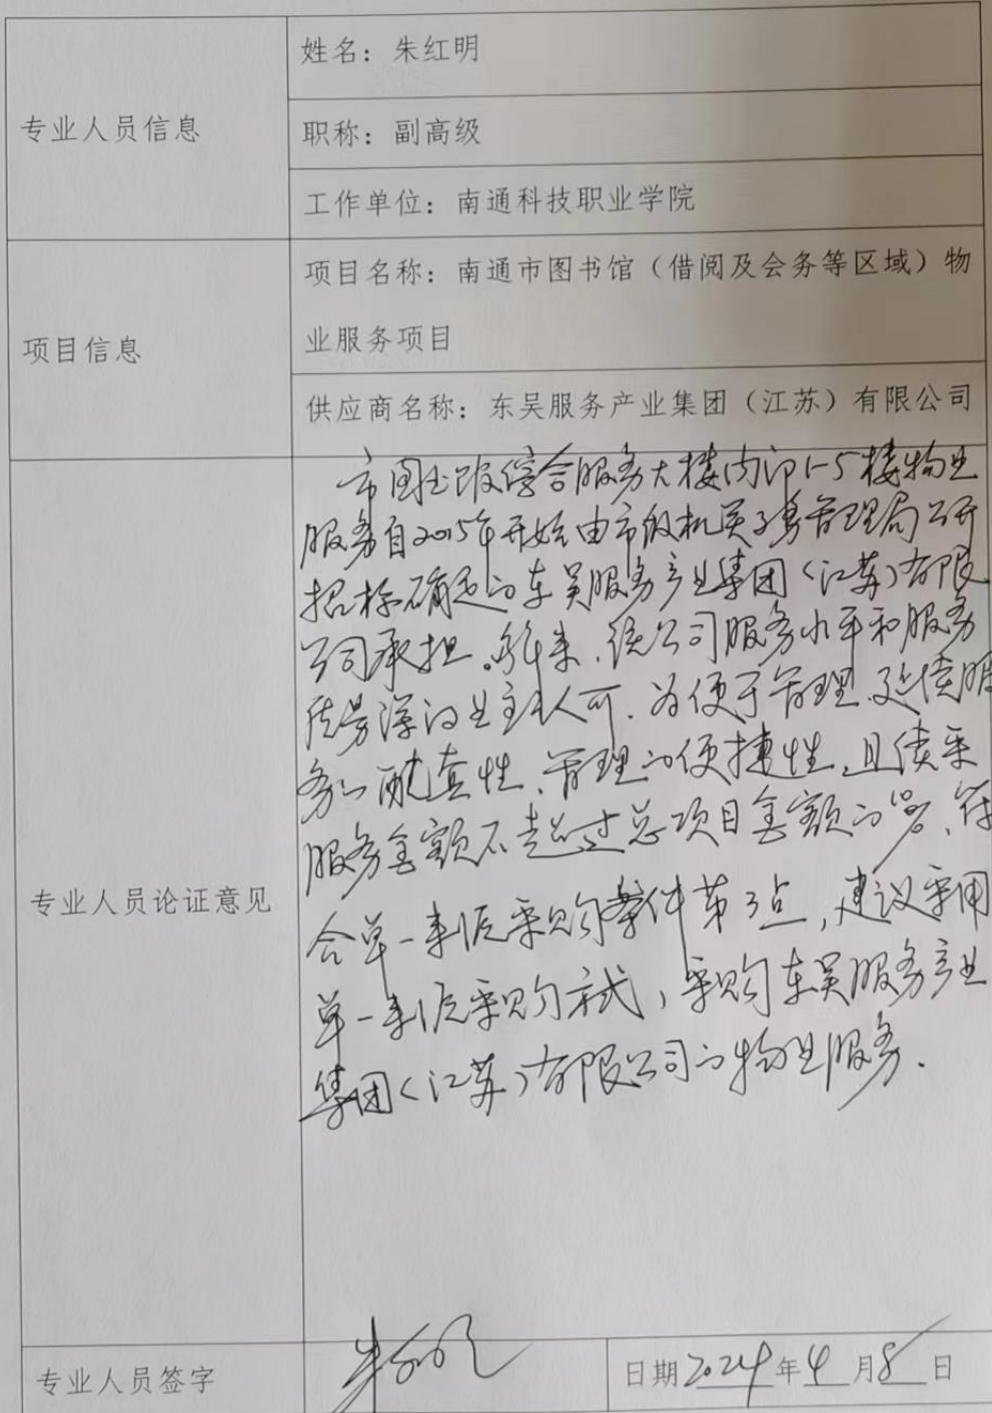 专业人员信息
姓名：朱红明
职称：副高级
工作单位：南通科技职业学院
项目信息
项目名称：南通市图书馆（借阅及会务等区域）物
业服务项目
供应商名称：东吴服务产业集团（江苏）有限公司
专业人员论证意见
市图书馆综合服务大楼内部1-5楼物业
服务自2015年开始由市级机关事务管理局公开
招标确定的东吴服务产业集团（江苏）有限
公司承担。年来，该公司服务水平和服务
质量深得业主认可。为便于管理，延续服
务的配套性、管理的便捷性，且续采
服务金额不超过总项目金额的10%，符
合单一来源采购条件第3点，建议采用
单一来源采购方式，采购东吴服务产业
集团（江苏）有限公司的物业服务。
专业人员签字
朱红明
日期2024年4月8日